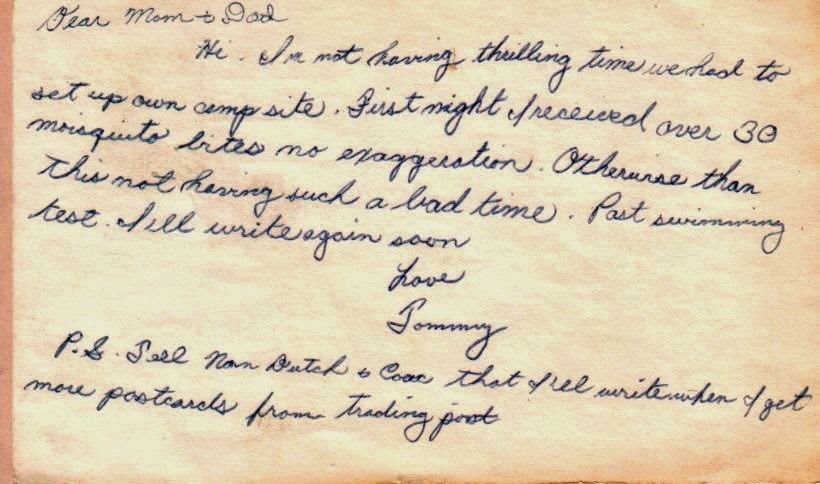 Dear Mom + Dad
Hi. I'm not having thrilling time we had to
set up own camp site. First night I received over 30
moisquito bites no exaggeration. Otherwise than
this not having such a bad time. Past swimming
test. I'll write again soon
Love
Tommy
P.S. Tell Nan Dutch + that I'll write when I get
more postcards from trading post